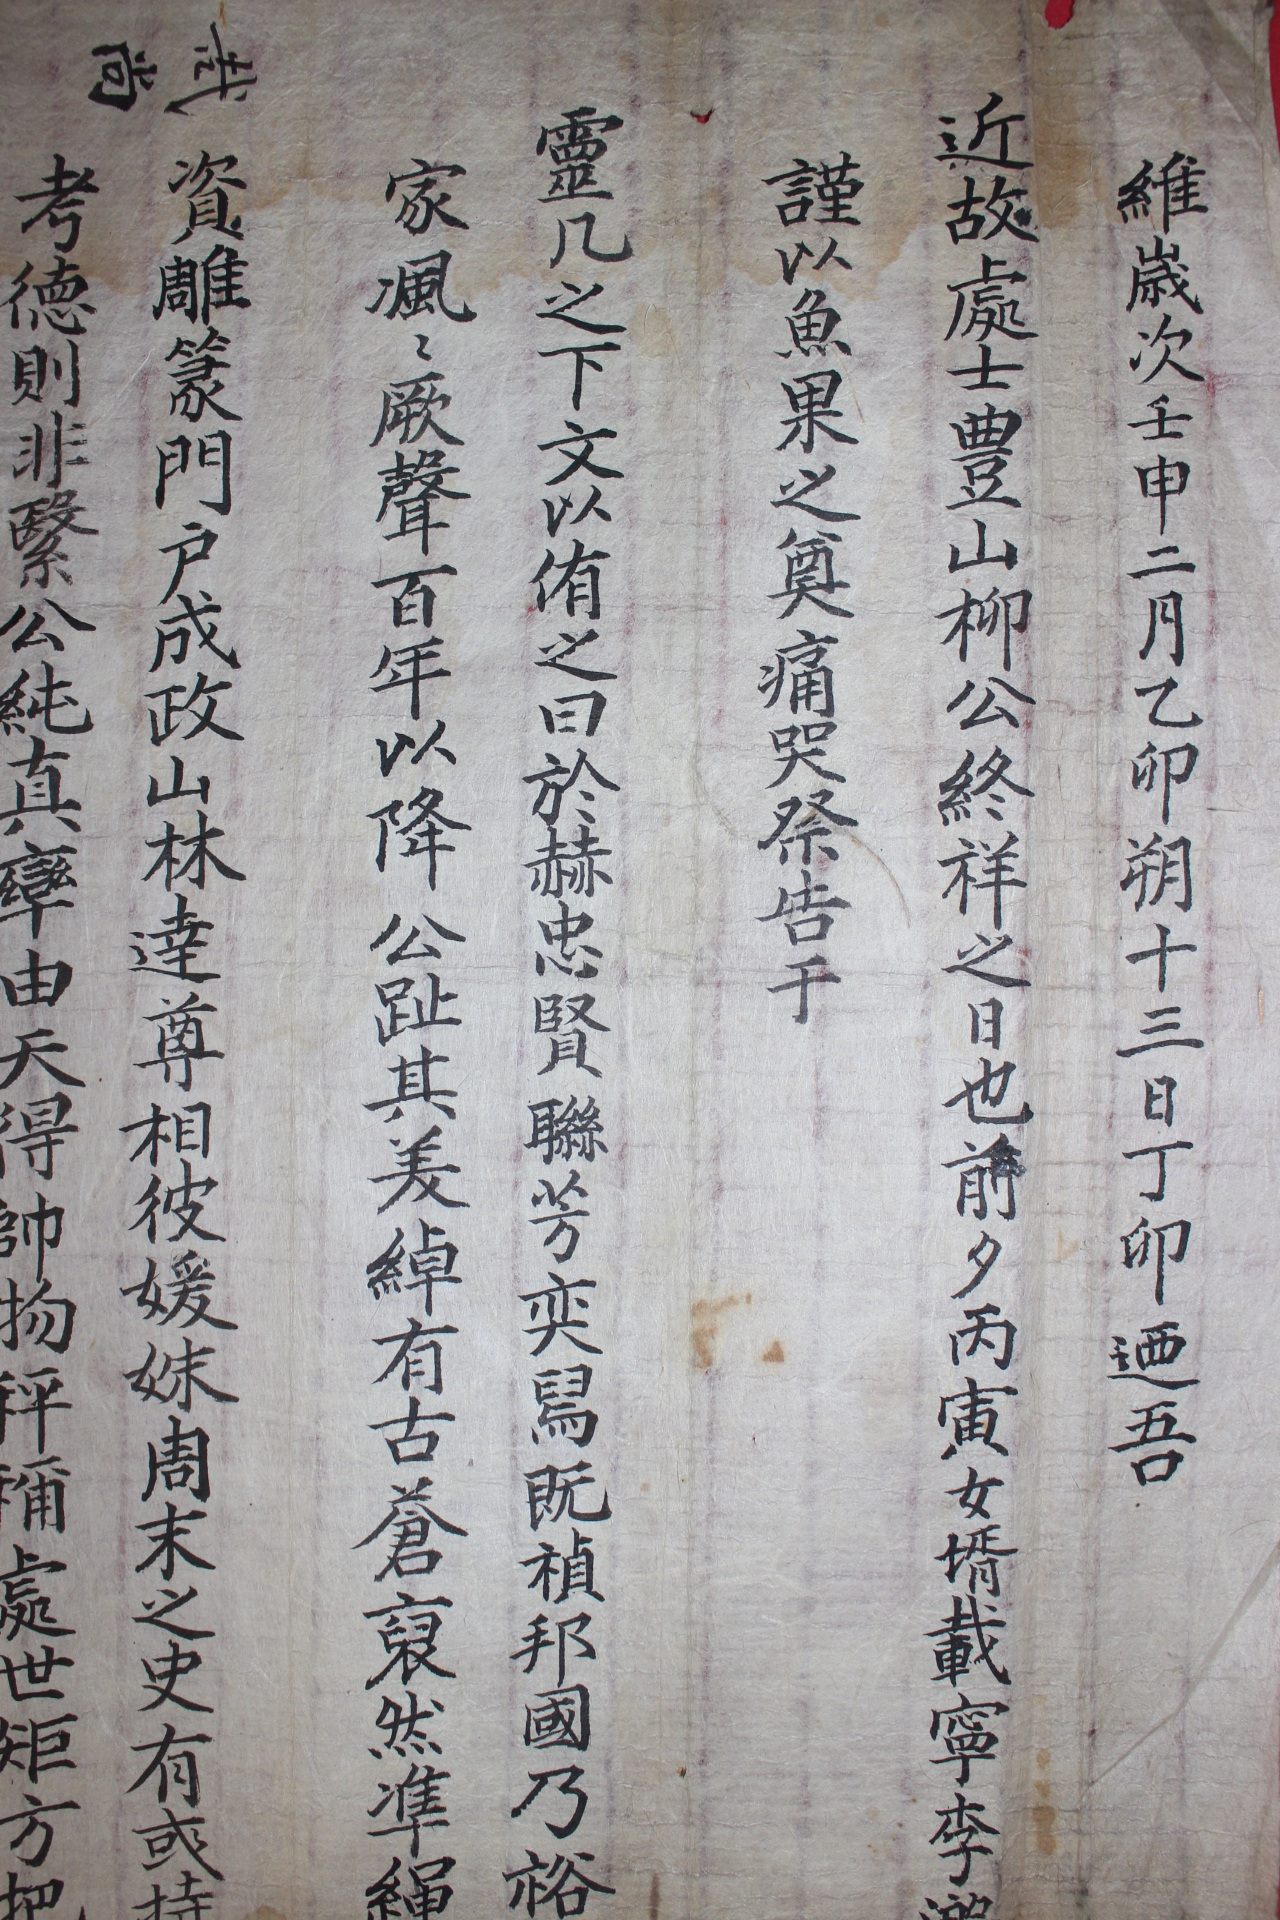 維歲次壬申二月乙卯朔十三日丁卯迺吾
近故處士豊山柳公終祥之日也前夕丙寅女壻載寧李
謹以魚果之奠痛哭祭告于
靈几之下文以侑之曰於赫忠賢聯芳奕舃既禎邦國乃裕
家風〻厥聲百年以降公趾其美綽有古蒼裒然準繩
資雕篆門戶成政山林達尊相彼媛姝周末之史有或持
考德則非繄公純真率由天得帥物稱處世矩方把